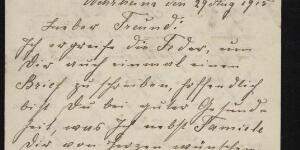 den 29 Aug 1915
Lieber Freund!
Ich ergreife die Feder, um
Dir auch einmal einen
Brief zu schreiben, hoffendlich
bist Du bei guter Gesund
heit, was ich nebst Familie
Dir von Herzen wünschen